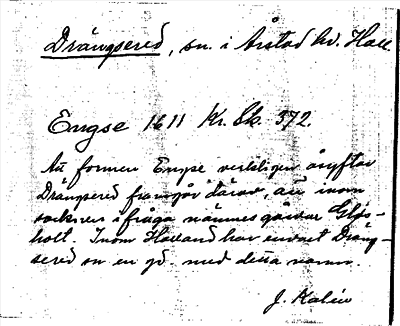 Drängsered, sn. i Årstad hd. Hall.
Engse 1611 Kr. Sk. 372.
Att formen Engse verkligen åsyftar
Drängsered framgår därav, att inom
socknen i fråga nämnes gården Gläs-
holt. Inom Halland har endast Dräng-
sered sn en gd. med detta namn.
J. Kalén